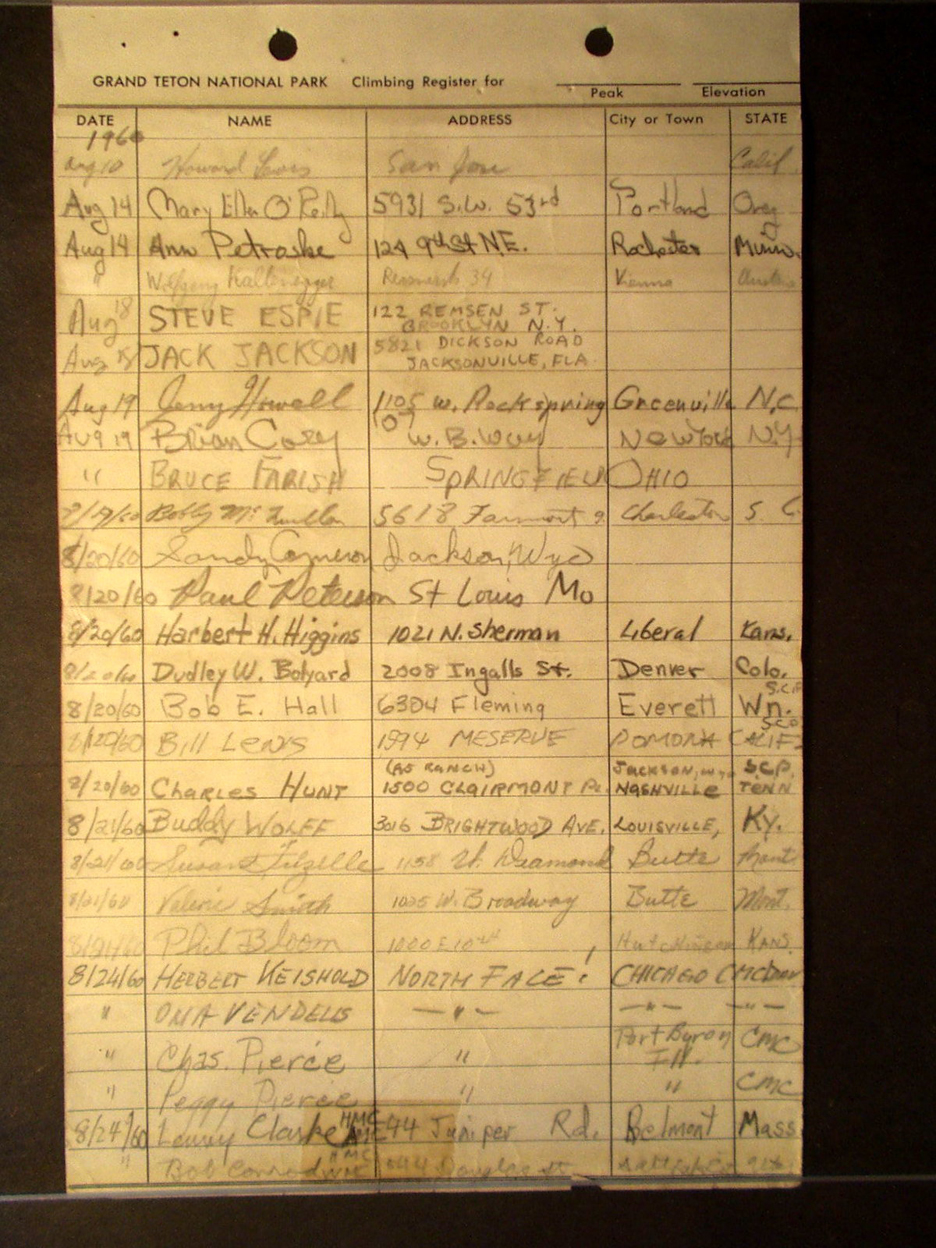 GRAND TETON NATIONAL PARK Climbing Register for
Peak Elevation
DATE NAME ADDRESS City or Town STATE
1960
Aug 10 Howard San Jose Calif.
Aug 14 Mary Ellen O'Reilly 5931 S.W. 53rd Portland Oreg
Aug 14 Ann Petraske 124 9th St N.E. Rochester Minn.
" Wolfgang 34 Vienna Austria
Aug 18 STEVE ESPIE 122 REMSEN ST.
BROOKLYN N.Y.
Aug 18 JACK JACKSON 5821 DICKSON ROAD
JACKSONVILLE, FLA.
Aug 19 Jerry Howell 1105 W. Rockspring Greenville N.C
Aug 19 Brian Corey 107 W. B.Way New York N.Y.
" BRUCE FARISH SPRINGFIELD OHIO
8/19/60 Bobby 5618 Charleston S. C.
8/20/60 Sandy Cameron Jackson, Wyo
8/20/60 Paul Peterson St Louis Mo
8/20/60 Harbert H. Higgins 1021 N. Sherman Liberal Kans.
8/20/60 Dudley W. Bolyard 2008 Ingalls St. Denver Colo.
8/20/60 Bob E. Hall 6304 Fleming Everett Wn.
8/20/60 Bill Lewis 1994 MESERVE POMONA CALIF
(A5 RANCH) JACKSON, Wyo S.C.P.
8/20/60 CHARLES HUNT 1500 CLAIRMONT PL. NASHVILLE TENN
8/21/60 Buddy WOLFF 3016 BRIGHTWOOD AVE. LOUISVILLE, KY.
8/21/60 Susan 1158 W. Diamond Butte Mont
8/21/60 Valerie Smith 1025 W. Broadway Butte Mont.
8/21/60 Phil Bloom 1000 E 10th Hutchinson KANS.
8/24/60 HERBERT KEISHOLD NORTH FACE! CHICAGO
" OMA VENDELIS — " — — " — — " —
Port Byron
" Chas. Pierce " Ill. CMC
" Peggy Pierce " " CMC
8/24/60 Clarke HMC 44 Juniper Rd. Belmont Mass.
" Bob HMC Douglas